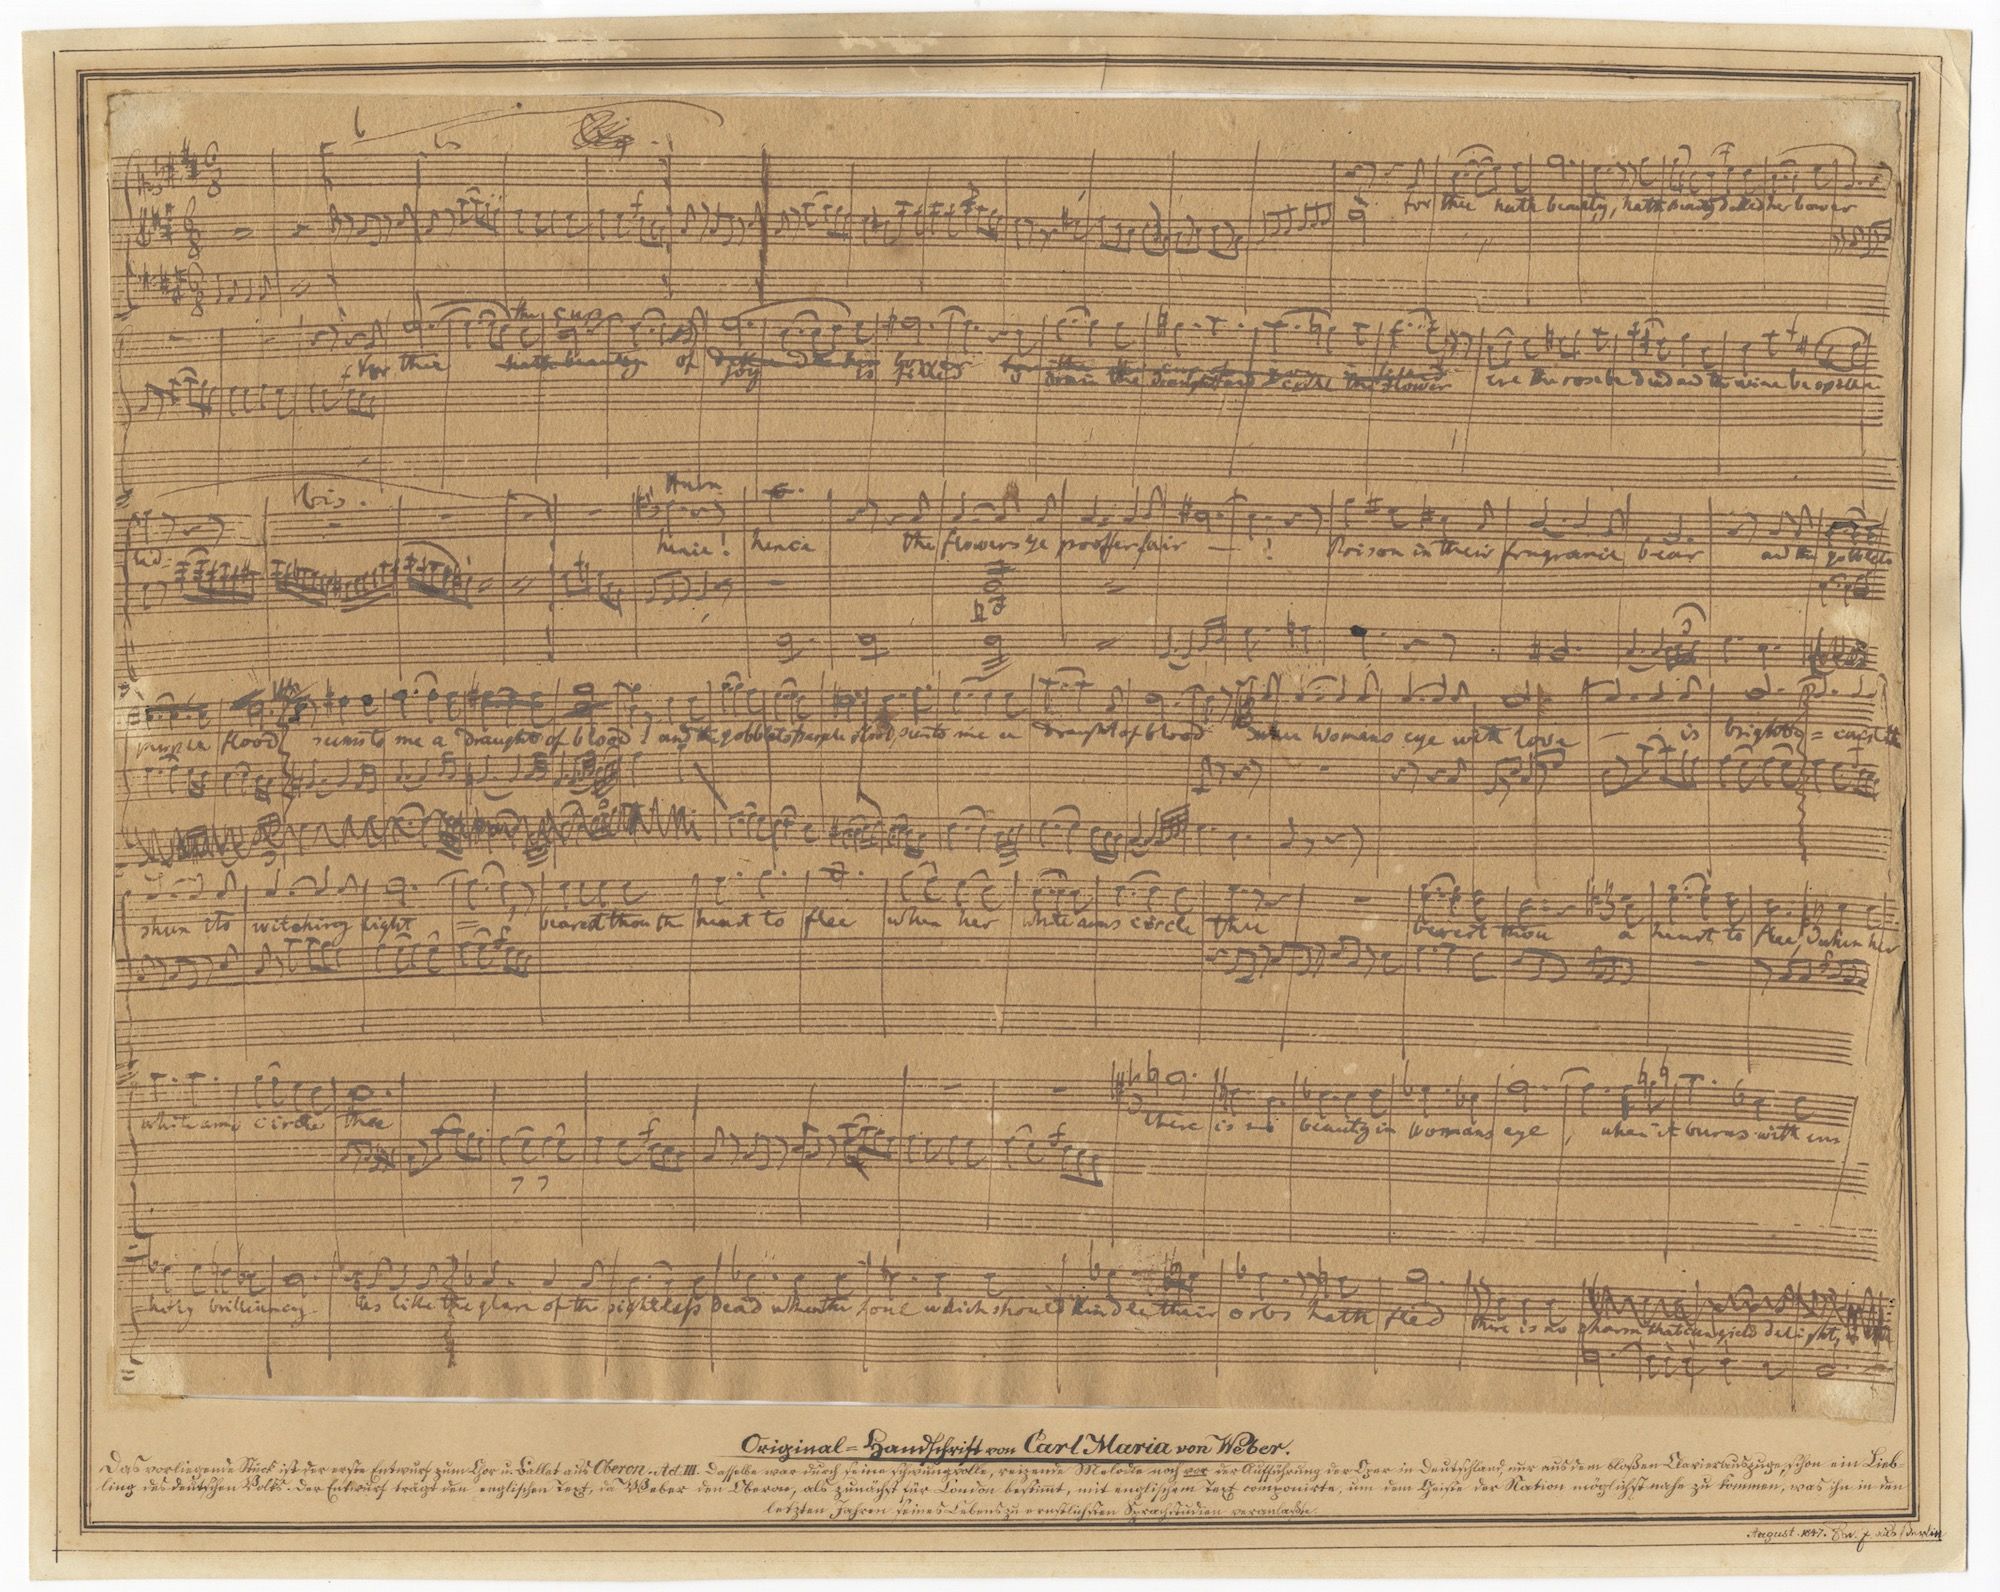 for thee hath beauty, hath beauty decked her bower
the cup
for thee hath beauty of joy is filled drain the draught and cull the flower ere the rose be dead and the wine be spilled
bis.
Huon
hence! hence the flowers ye proffer fair — ! Poison in their fragrance bear and the goblets
purple flood seems to me a draught of blood! and the goblets purple flood seems to me a draught of blood When womans eye with love — is bright
shun its witching light = , bearest thou the heart to flee when her white arms circle thee bearest thou a heart to flee, when her
white arms circle thee
there is no beauty in womans eye, when it burns with un
=holy brilliancy. tis like the glare of the sightless dead when the soul which should kindle their orbs hath fled there is no charm that can yield delight,
Original=Handschrift von Carl Maria von Weber.
Das vorliegende Stück ist der erste Entwurf zum Chor u. Ballet aus Oberon. Act III. Dasselbe war durch seine schwungvolle, reizende Melodie noch vor der Aufführung der Oper in Deutschland, nur aus dem bloßen Clavierauszuge, schon ein Lieb-
ling des deutschen Volks. Der Entwurf trägt den englischen Text, da Weber den Oberon, als zunächst für London bestimmt, mit englischem Text componirte, um dem Geiste der Nation möglichst nahe zu kommen, was ihn in den
letzten Jahren seines Lebens zu ernstlichsten Sprachstudien veranlaßte.
August 1847. Berlin